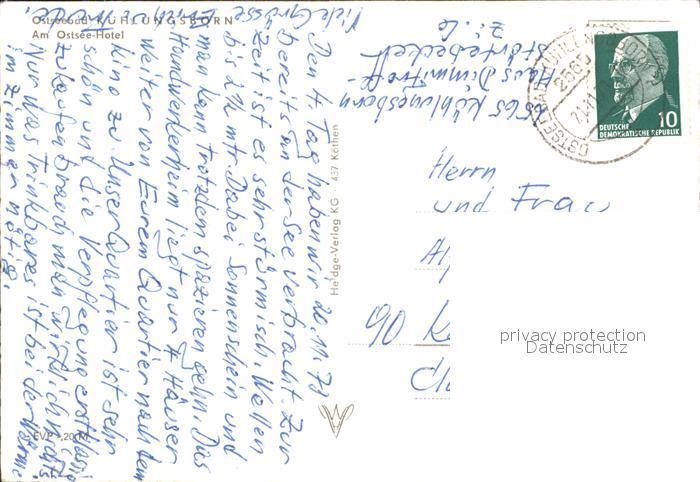 Ostseebad KÜHLUNGSBORN
Am Ostsee-Hotel
Den 4 Tag haben wir 20.11.73
bereits an der See verbracht. Zur
Zeit ist es sehr stürmisch. Wellen
bis 2½ mtr. Dabei Sonnenschein und
man kann trotzdem spazieren gehn. Das
Handwerkerheim liegt nur 7 Häuser
weiter von Eurem Quartier nach dem
Kino zu. Unser Quartier ist sehr
schön und die Verpflegung erstklassig
zukaufen brauch man wirklich nichts
Nur was Trinkbares ist bei der Wärme
im Zimmer nötig.
Viele Grüsse
EVP -,20 M
Heldge-Verlag KG 437 Köthen
2565 Kühlungsborn
Haus Dimmitroff-
Störtebecker
Zi. 6
2565
OSTSEEBAD KÜHLUNGSBORN
10
DEUTSCHE
DEMOKRATISCHE REPUBLIK
Herrn
und Frau
90 K
privacy protection
Datenschutz